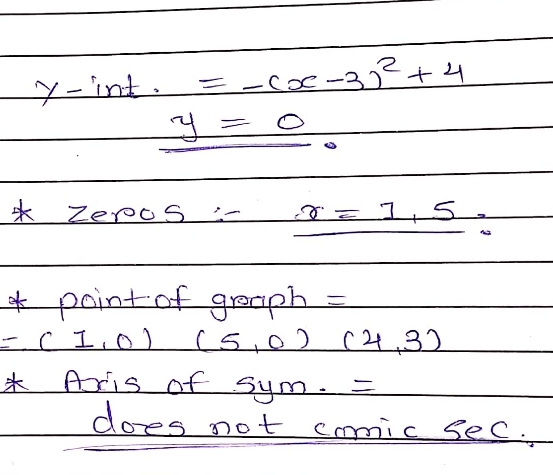 y-int. = -(x-3)² + 4
y = 0.
* zeros :- x = 1, 5.
* point of graph =
= (1,0) (5,0) (4,3)
* Axis of sym. =
does not comic sec.